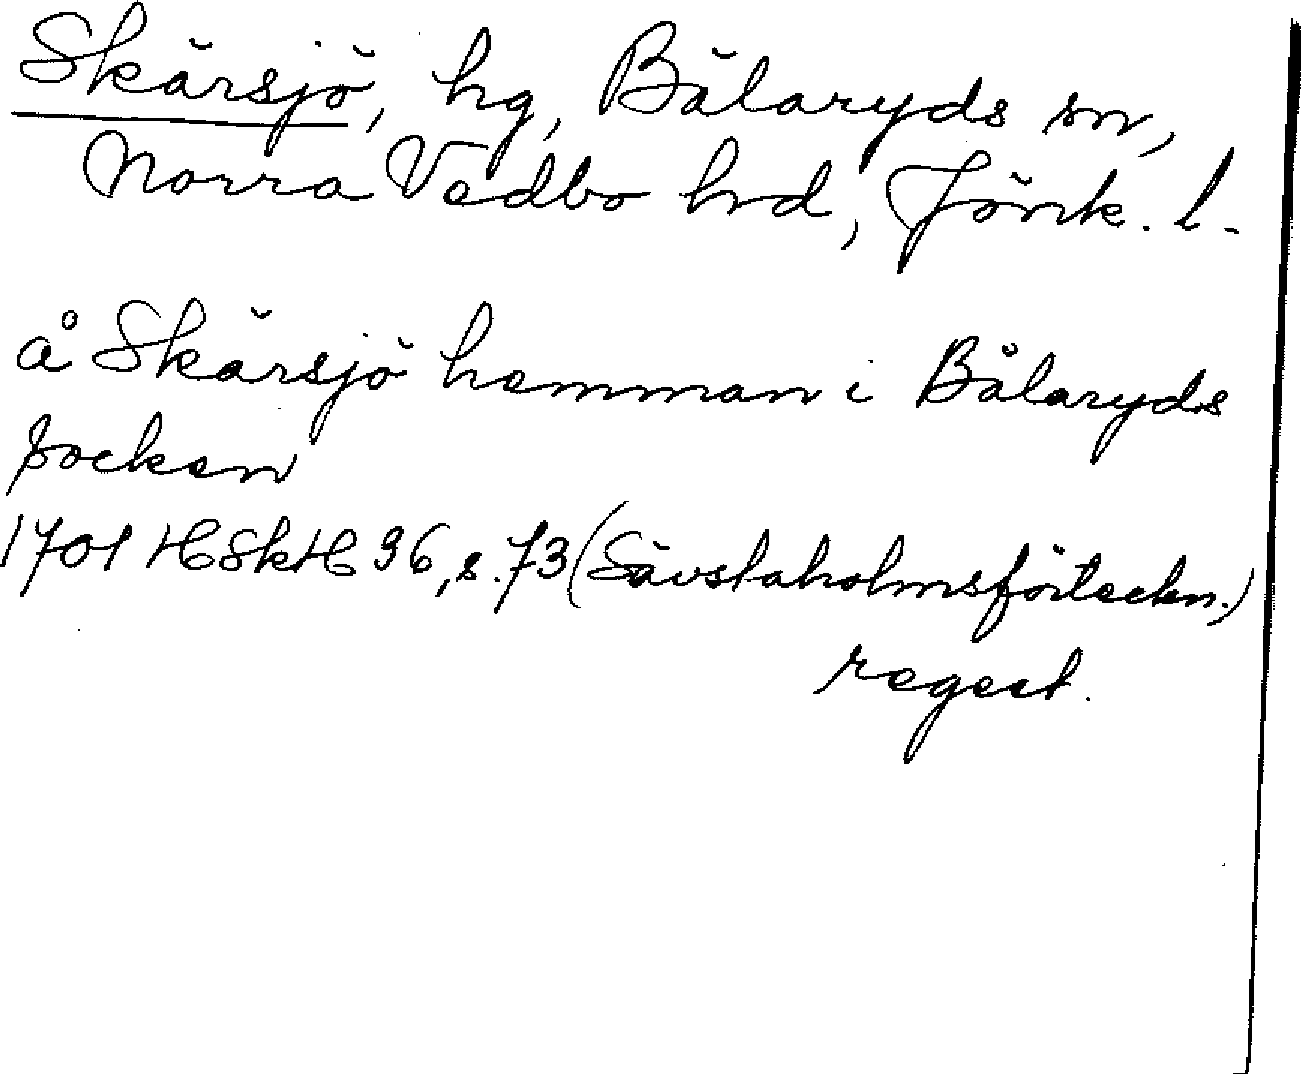 Skärsjö, hg, Bälaryds sn,
Norra Vedbo hrd, Jönk. l.
å Skärsjö hemman i Bålaryds
socken
1701 HSkH 36, s. 73 (Sävstaholmsförteckn.)
regest.